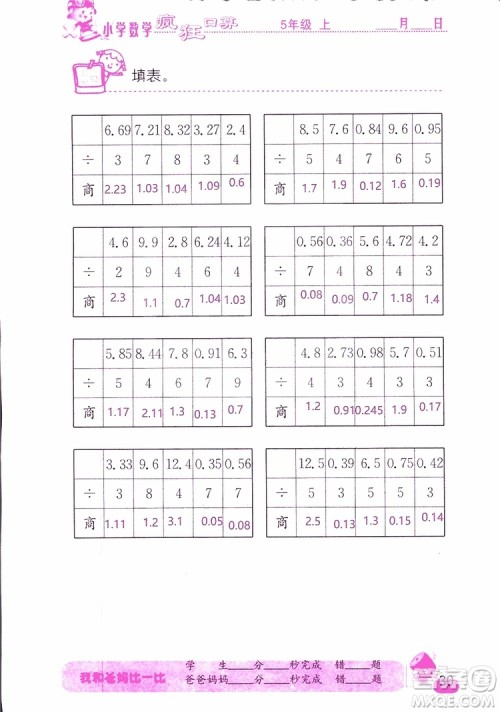 小学数学 疯狂口算 5年级 上 ____月____日
填表。
6.69 7.21 8.32 3.27 2.4
÷ 3 7 8 3 4
商 2.23 1.03 1.04 1.09 0.6
8.5 7.6 0.84 9.6 0.95
÷ 5 4 7 6 5
商 1.7 1.9 0.12 1.6 0.19
4.6 9.9 2.8 6.24 4.12
÷ 2 9 4 6 4
商 2.3 1.1 0.7 1.04 1.03
0.56 0.36 5.6 4.72 4.2
÷ 7 4 8 4 3
商 0.08 0.09 0.7 1.18 1.4
5.85 8.44 7.8 0.91 6.3
÷ 5 4 6 7 9
商 1.17 2.11 1.3 0.13 0.7
4.8 2.73 0.98 5.7 0.51
÷ 4 3 4 3 3
商 1.2 0.91 0.245 1.9 0.17
3.33 9.6 12.4 0.35 0.56
÷ 3 8 4 7 7
商 1.11 1.2 3.1 0.05 0.08
12.5 0.39 6.5 0.75 0.42
÷ 5 3 5 5 3
商 2.5 0.13 1.3 0.15 0.14
我和爸妈比一比
学 生____分____秒完成 错____题
爸爸妈妈____分____秒完成 错____题